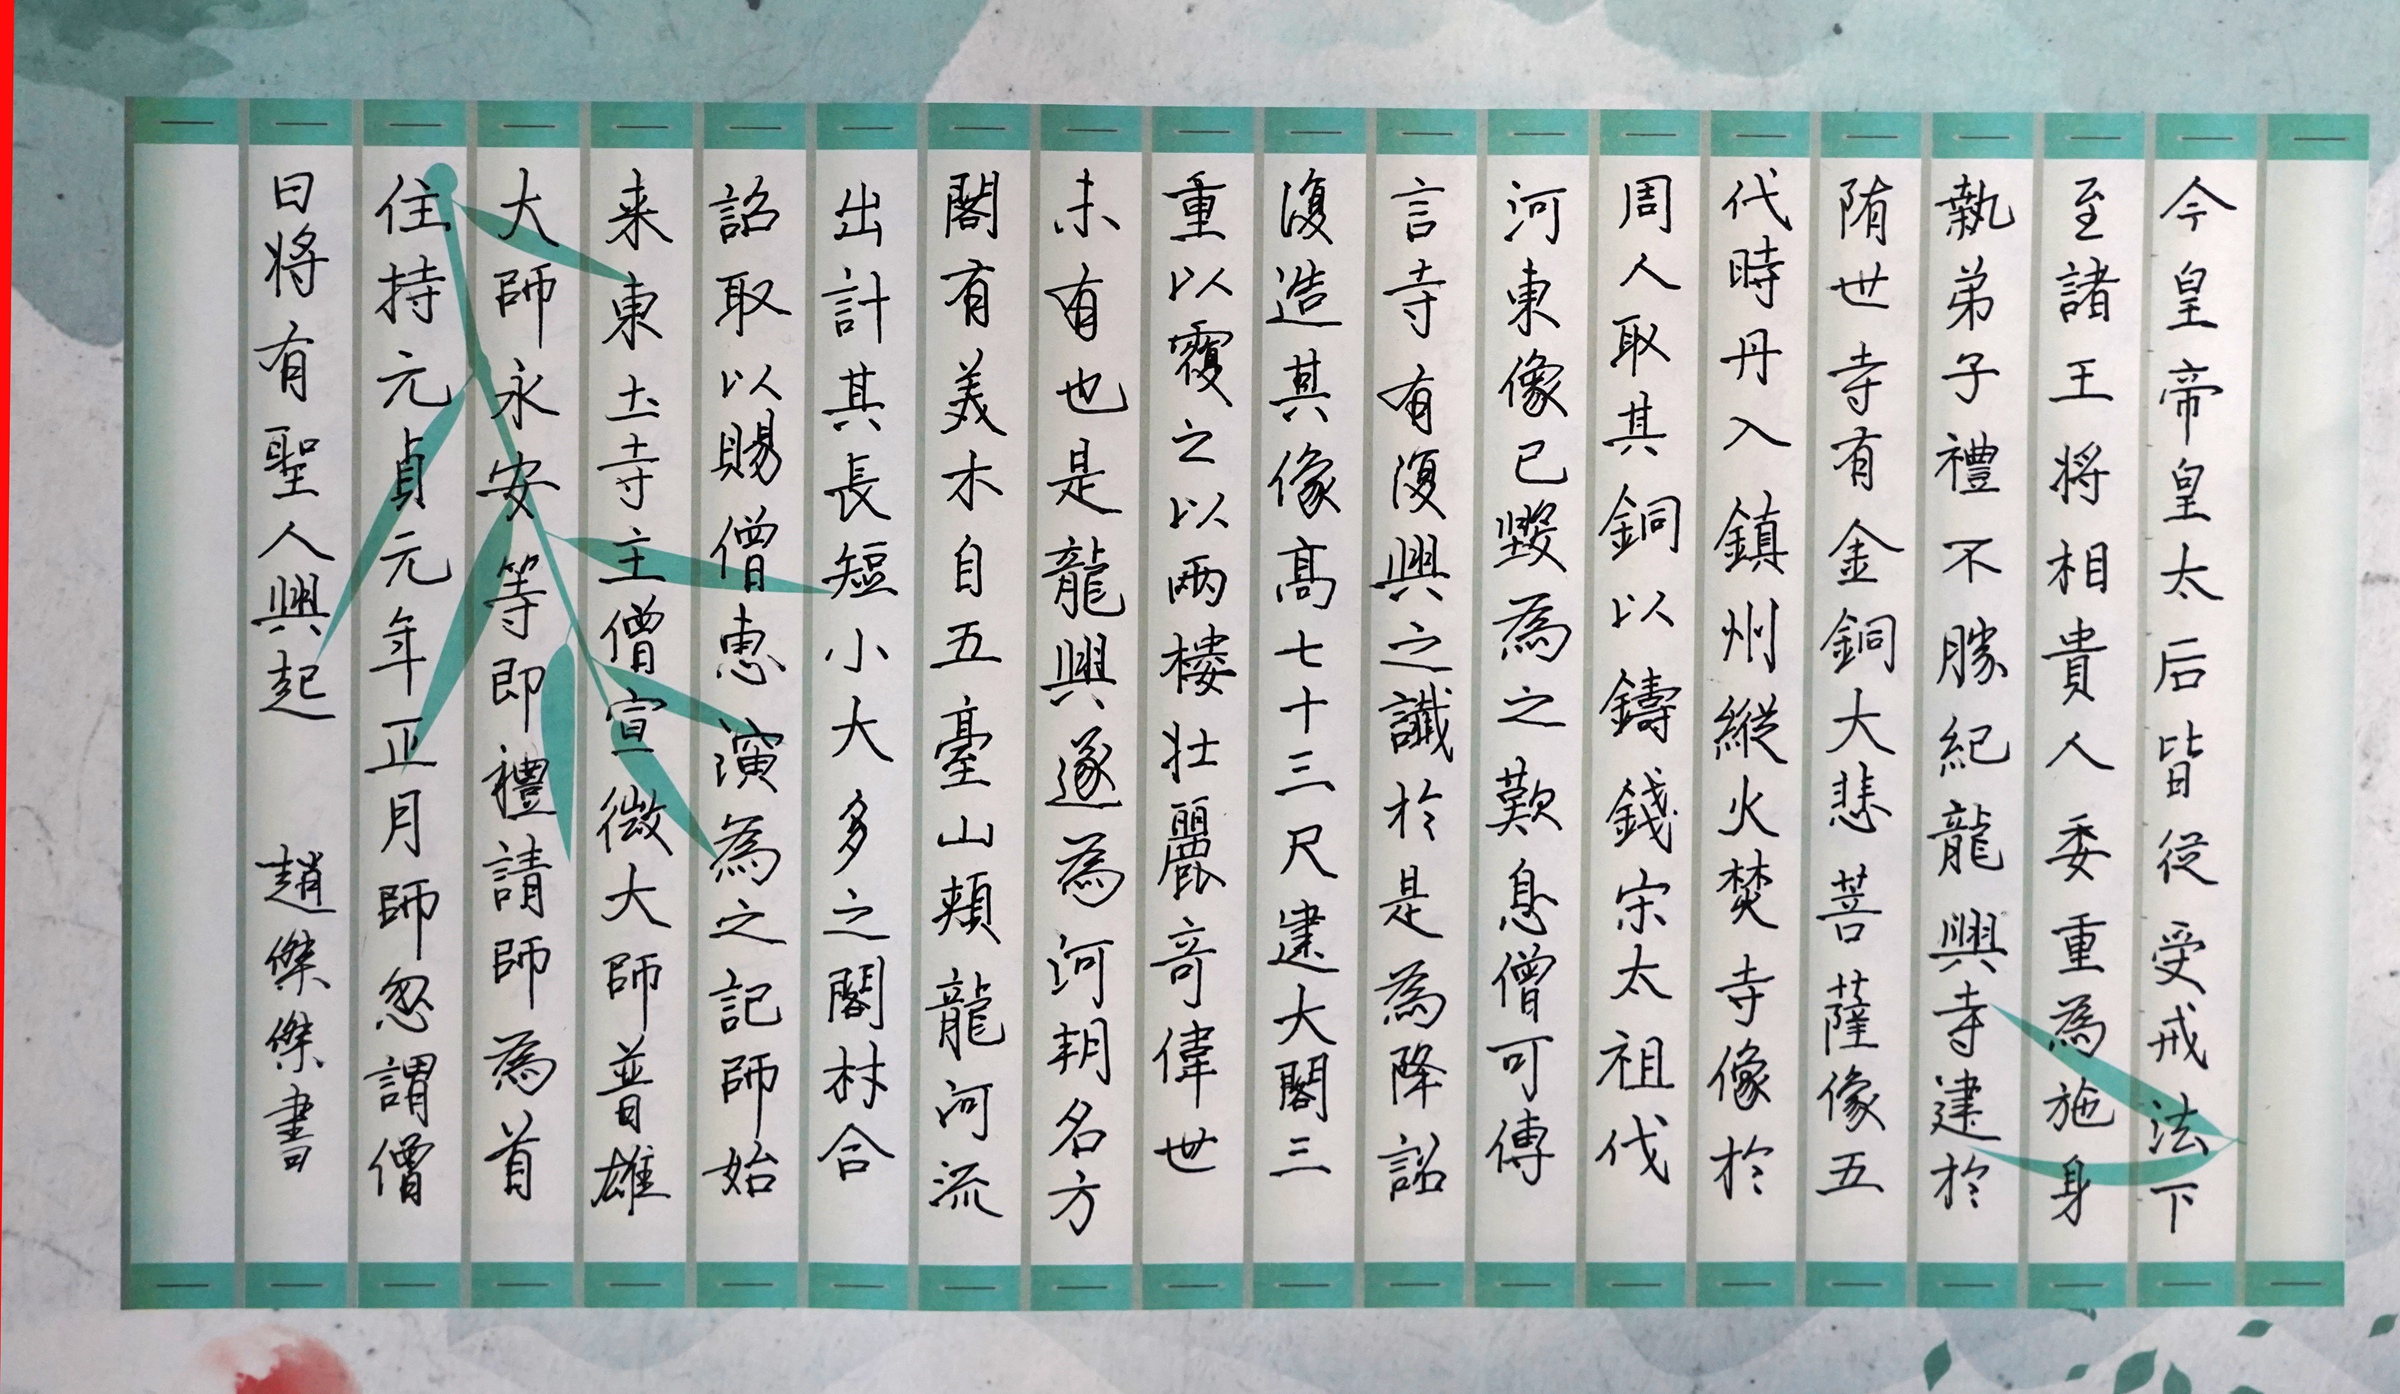 今皇帝皇太后皆從受戒法下
至諸王將相貴人委重為施身
執弟子禮不勝紀龍興寺建於
隋世寺有金銅大悲菩薩像五
代時丹入鎮州縱火焚寺像於
周人取其銅以鑄錢宋太祖伐
河東像已毀為之歎息僧可傳
言寺有復興之讖於是為降詔
復造其像高七十三尺建大閣三
重以覆之以兩楼壯麗奇偉世
未有也是龍興遂為河朔名方
閣有美木自五臺山頰龍河流
出計其長短小大多之閣材合
詔取以賜僧惠演為之記師始
来東土寺主僧宣微大師普雄
大師永安等即禮請師為首
住持元貞元年正月師忽謂僧
曰將有聖人興起 趙傑傑書